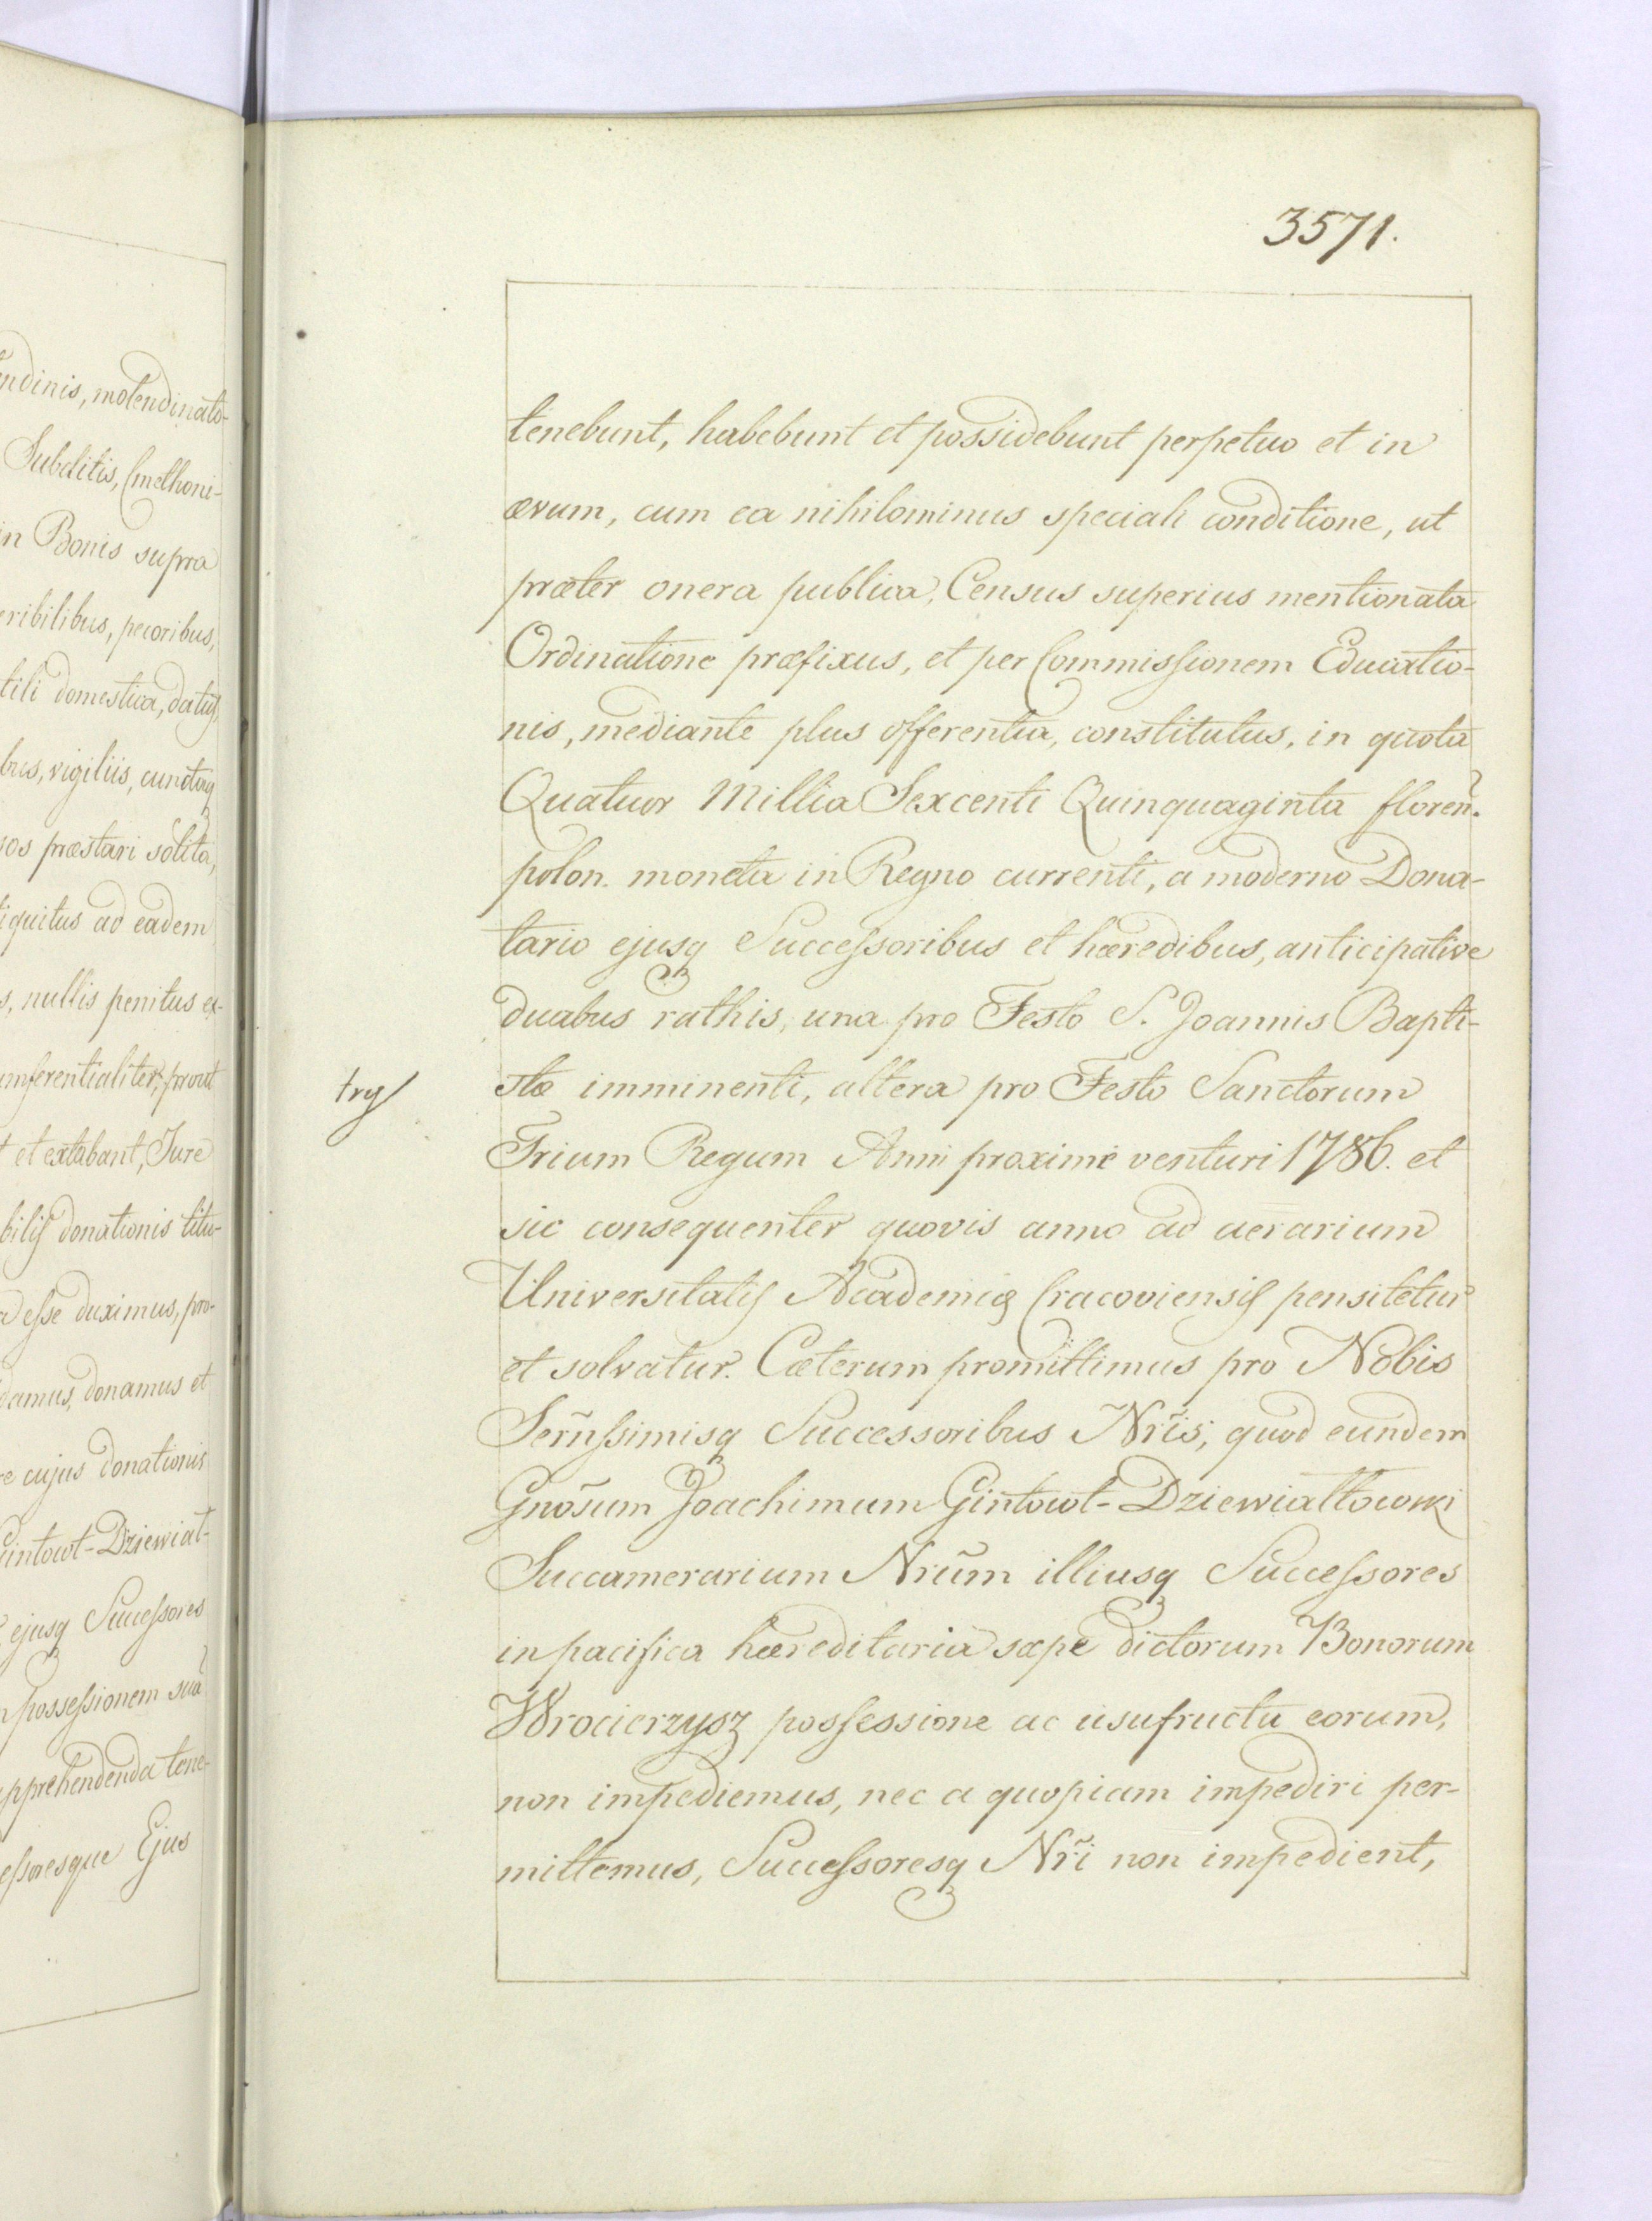 endinis, molendinato-
Subditis, Cmethoni-
in Bonis supra
eribilibus, pecoribus,
tili domestica, datijs
bus, vigiliis, cunctisq
os præstari solita,
tiquitus ad eadem
s, nullis penitus ex-
umferentialiter, prout
t et extabant, Jure
bilis donationis titu-
a esse duximus, pro-
damus, donamus et
re cujus donationis
Gintowt-Dziewiat-
ejusq Successores
n possessionem suã
apprehendenda tene-
essoresque Ejus
3571.
tenebunt, habebunt et possidebunt perpetuo et in
ævum, cum ea nihilominus speciali conditione, ut
præter onera publica, Census superius mentionata
Ordinatione præfixus, et per Commissionem Educatio-
nis, mediante plus offerentia, constitutus, in quota
Quatuor Millia Sexcenti Quinquaginta floreñ.
polon. moneta in Regno currenti, a moderno Dona-
tario ejusq Successoribus et hæredibus, anticipative
duabus rathis, una pro Festo S. Joannis Bapti-
stæ imminenti, altera pro Festo Sanctorum
Trium Regum Anni proximè venturi 1786. et
sic consequenter quovis anno ad aerarium
Universitatis Academiæ Cracoviensis pensitetur
et solvatur. Cæterum promittimus pro Nobis
Serñssimisq Successoribus Nrĩs, quod eundem
Gnõsum Joachimum Gintowt-Dziewiałtowski
Succamerarium Nrũm illiusq Successores
in pacifica hæreditaria sæpe dictorum Bonorum
Wrocierzysz possessione ac usufructu eorum,
non impediemus, nec a quopiam impediri per-
mittemus, Successoresq Nrĩ non impedient,